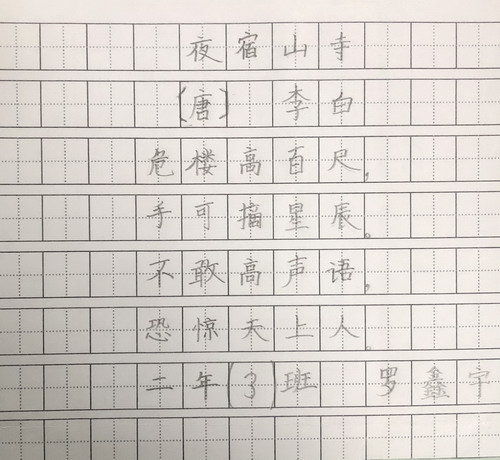 夜宿山寺
[唐] 李白
危楼高百尺,
手可摘星辰。
不敢高声语,
恐惊天上人。
二年(3)班 罗鑫宇